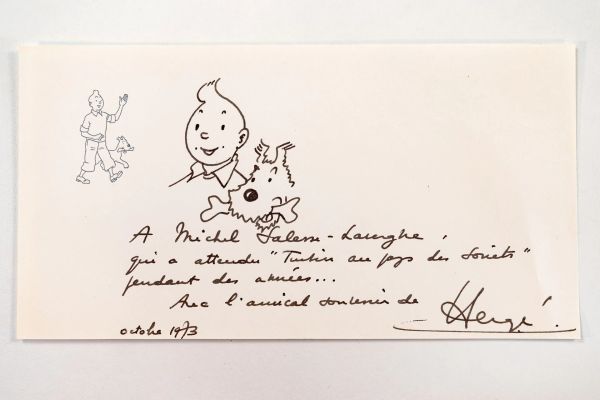 A Michel
qui a attendu "Tintin au pays des Soviets"
pendant des années...
Avec l'amical souvenir de
Hergé.
octobre 1973